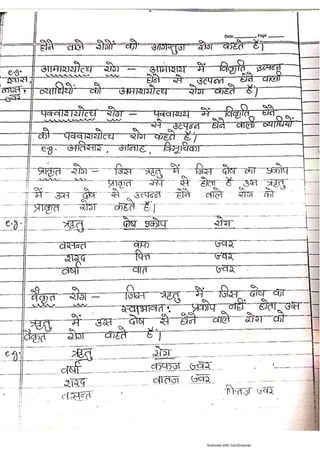 Date ______ Page ______
होने वाले रोगों को आगन्तुज रोग कहते हैं।
आमाशयोत्थ रोग - आमाशय में विकृति उत्पन्न
e.g. होने से उत्पन्न होने वाली
श्वास, व्याधियों को आमाशयोत्थ रोग कहते हैं।
ज्वर
पक्वाशयोत्थ रोग - पक्वाशय में विकृति होने
से उत्पन्न होने वाली व्याधियों
को पक्वाशयोत्थ रोग कहते हैं।
eg. अतिसार, आनाह, विसूचिका
प्राकृत रोग - जिस ऋतु में जिस दोष का प्रकोप
प्राकृत रूप से होता है उस ऋतु
में उस दोष से उत्पन्न होने वाले रोग को
प्राकृत रोग कहते हैं।
e.g. ऋतु दोष प्रकोप रोग
वसन्त कफ ज्वर
शरद पित्त ज्वर
वर्षा वात ज्वर
वैकृत रोग - जिस ऋतु में जिस दोष का
स्वभावतः प्रकोप नहीं होता उस
ऋतु में उस दोष से होने वाले रोग को
वैकृत रोग कहते हैं।
eg. ऋतु रोग
वर्षा कफज ज्वर
शरद वातज ज्वर
वसन्त पित्तज ज्वर
Scanned with CamScanner